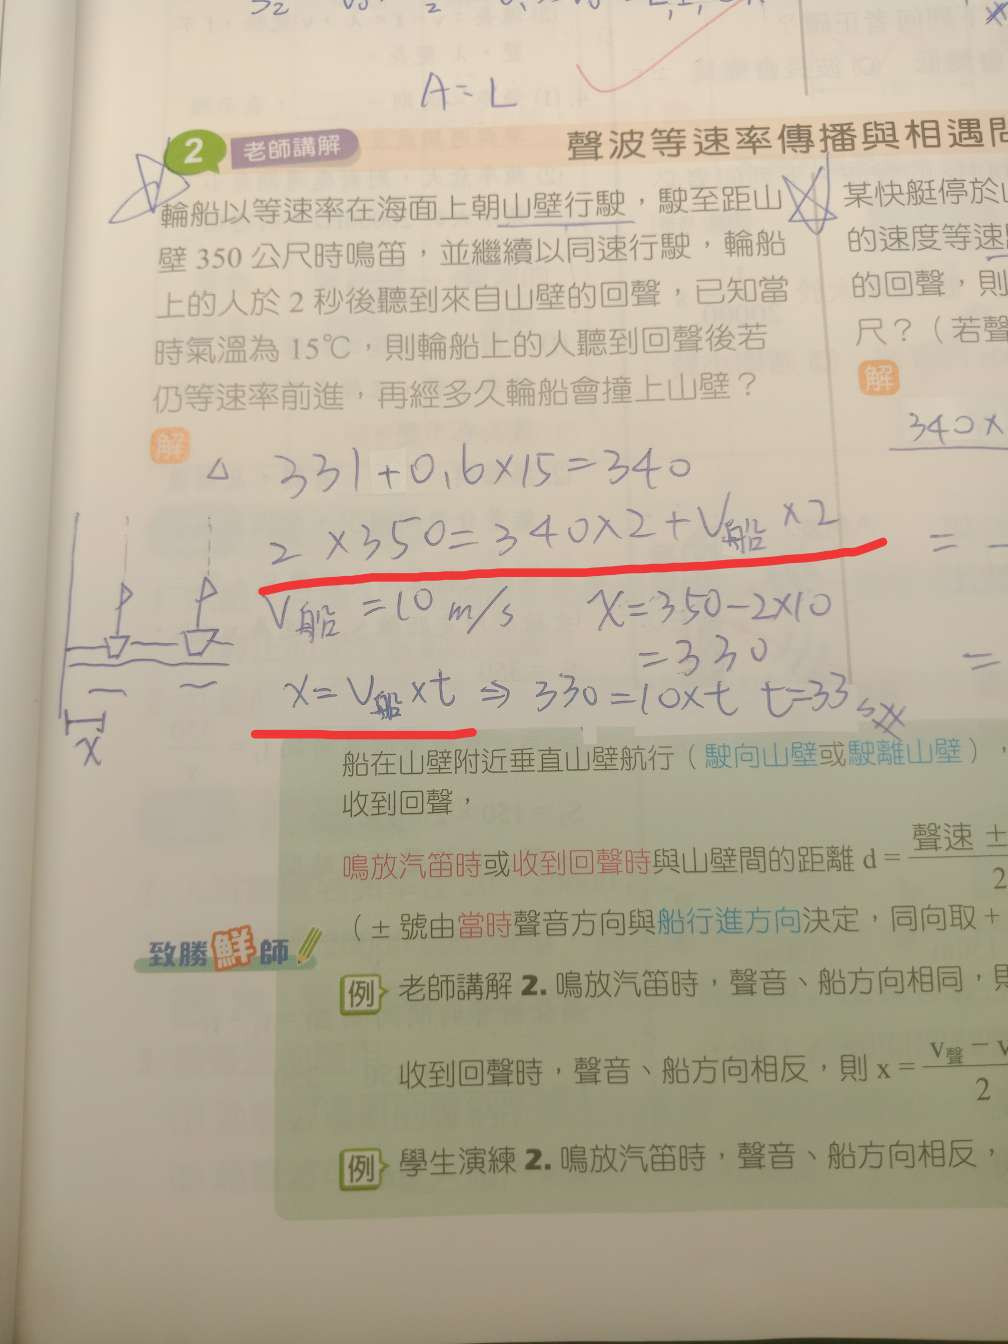 A = L
2 老師講解 聲波等速率傳播與相遇
輪船以等速率在海面上朝山壁行駛，駛至距山
壁 350 公尺時鳴笛，並繼續以同速行駛，輪船
上的人於 2 秒後聽到來自山壁的回聲，已知當
時氣溫為 15℃，則輪船上的人聽到回聲後若
仍等速率前進，再經多久輪船會撞上山壁？
解
△ 331+0.6×15=340
2 ×350=340×2+V船×2
V船 =10 m/s X=350-2×10
=330
X=V船×t ⇒ 330=10×t t=33 s
X
船在山壁附近垂直山壁航行（駛向山壁或駛離山壁），
收到回聲，
鳴放汽笛時或收到回聲時與山壁間的距離 d = 聲速 ±
2
（± 號由當時聲音方向與船行進方向決定，同向取 +
致勝鮮師
例 老師講解 2. 鳴放汽笛時，聲音、船方向相同，
收到回聲時，聲音、船方向相反，則 x = v聲 −
2
例 學生演練 2. 鳴放汽笛時，聲音、船方向相反，
某快艇停於
的速度等速
的回聲，則
尺？（若聲
解
340×
=
=